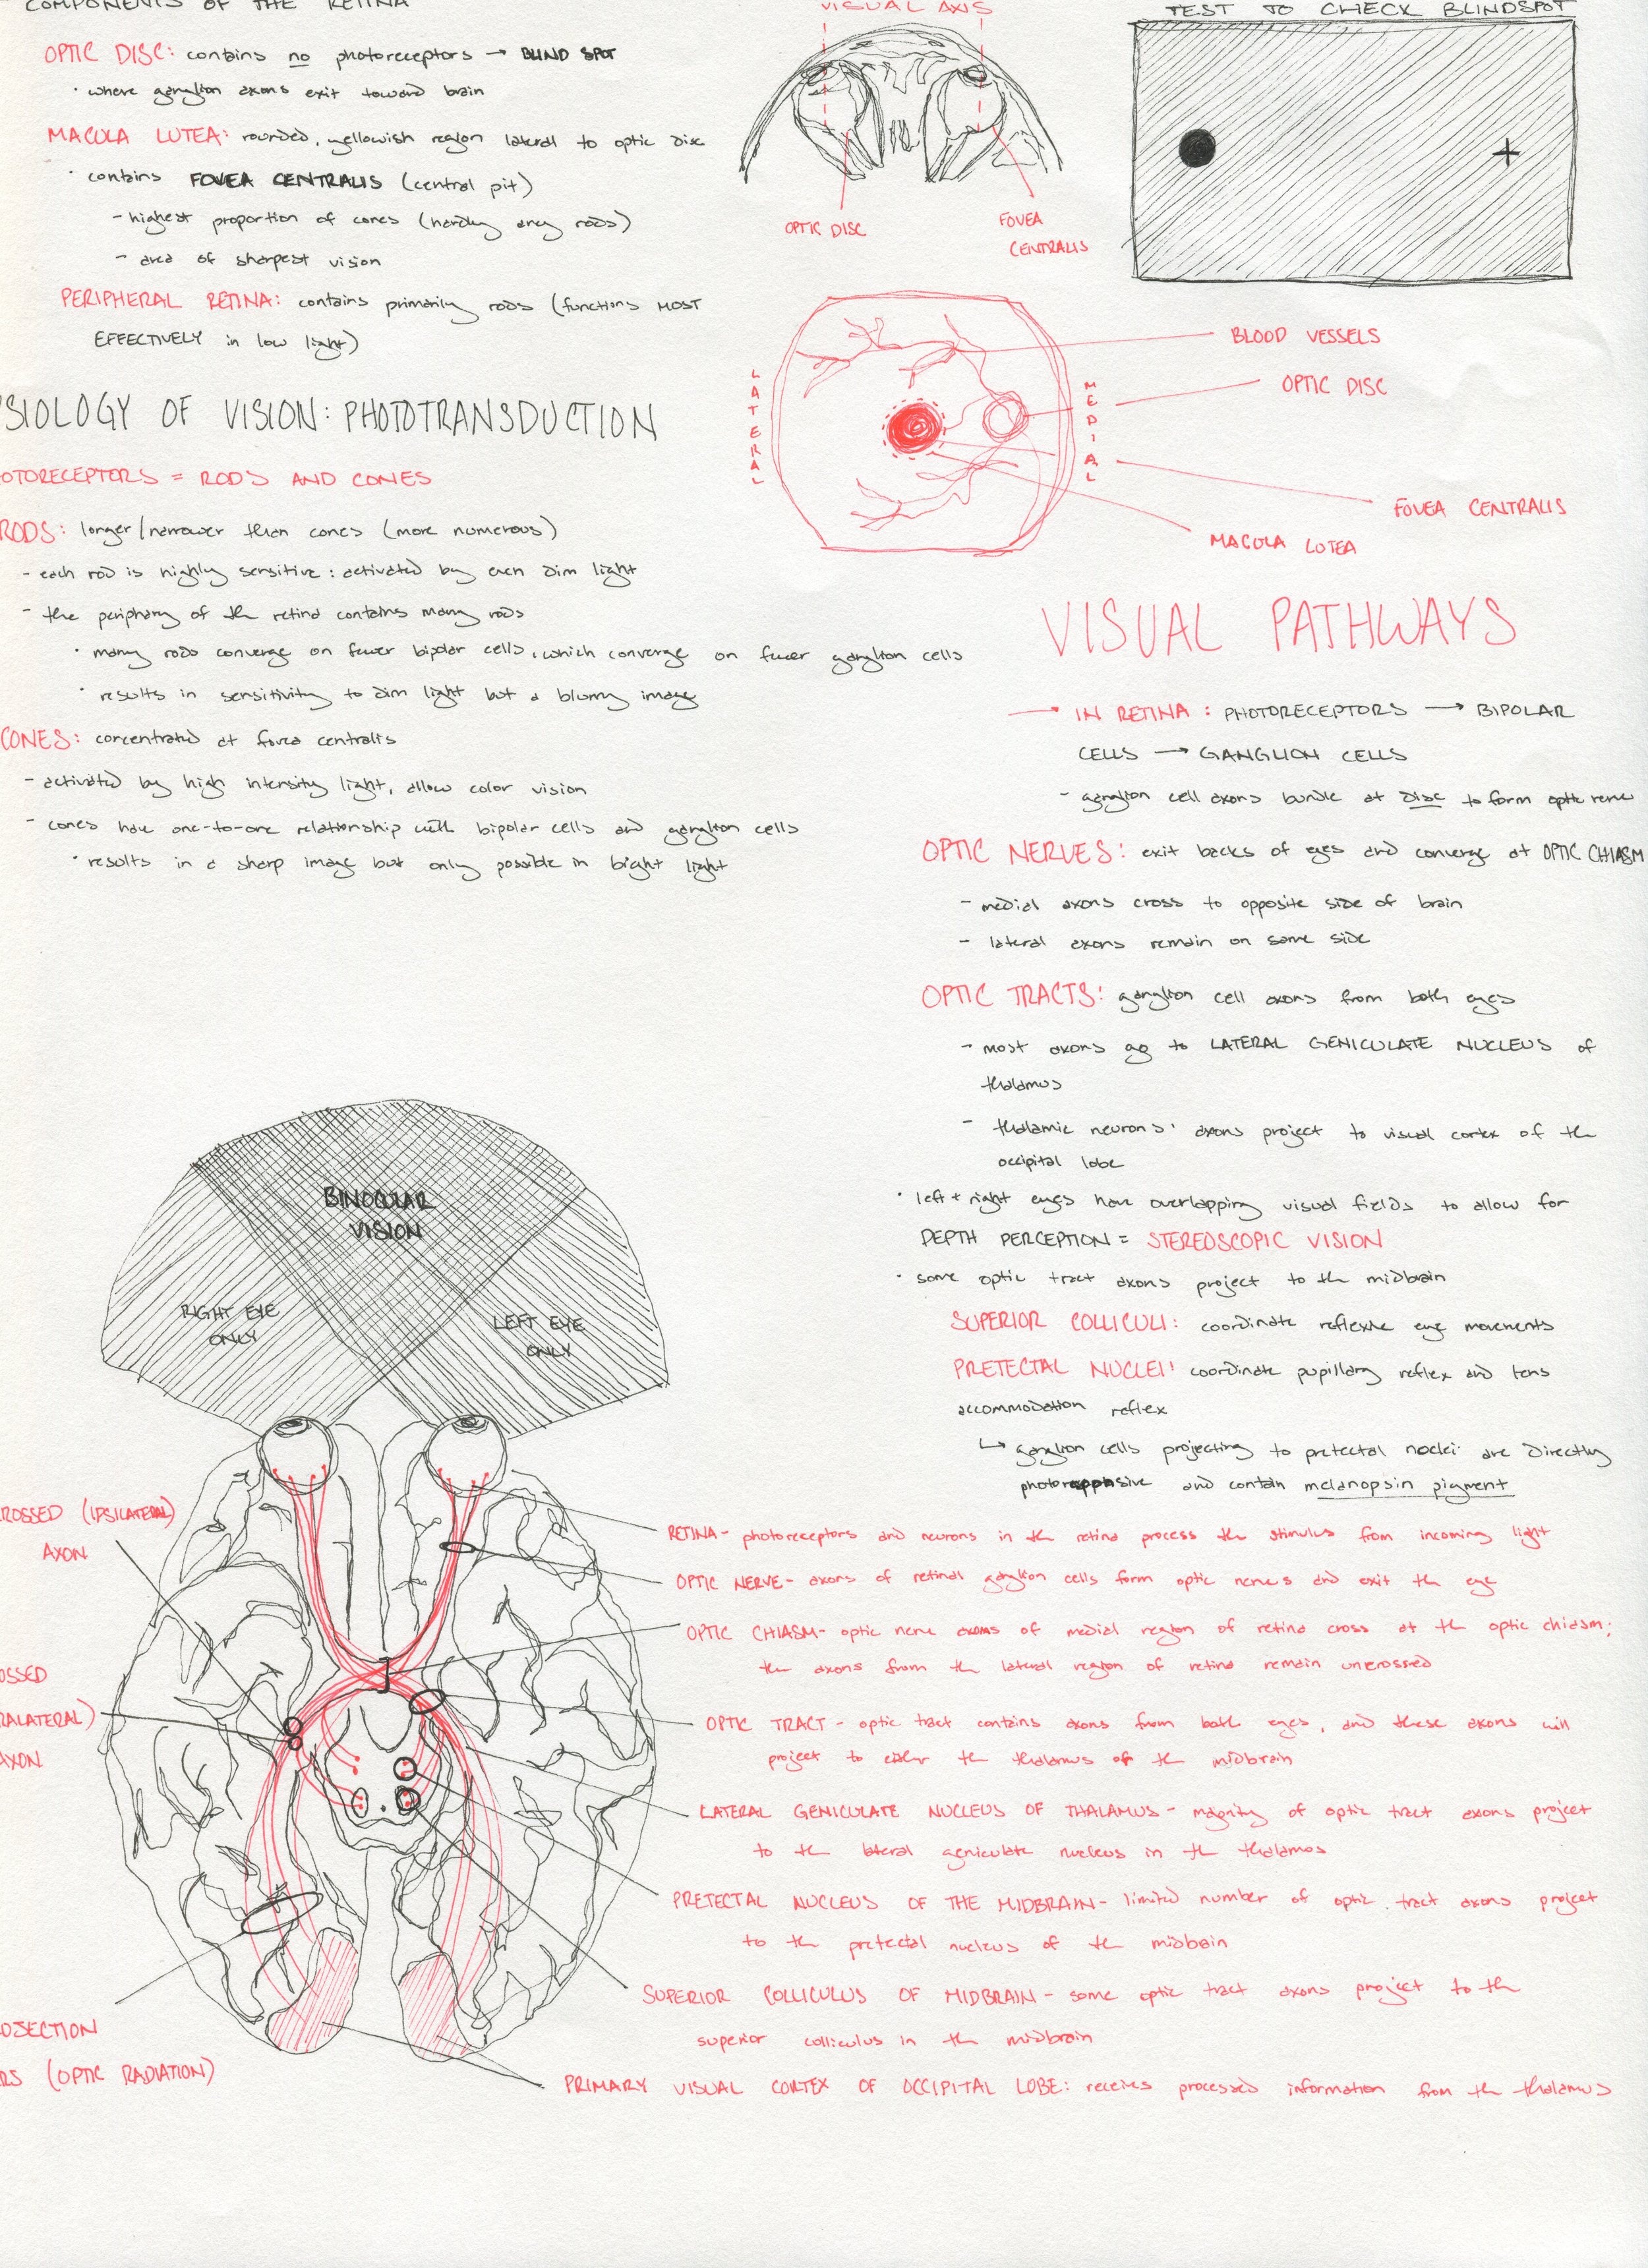 COMPONENTS OF THE RETINA
OPTIC DISC: contains no photoreceptors → BLIND SPOT
· where ganglion axons exit toward brain
MACULA LUTEA: rounded, yellowish region lateral to optic disc
· contains FOVEA CENTRALIS (central pit)
- highest proportion of cones (hardly any rods)
- area of sharpest vision
PERIPHERAL RETINA: contains primarily rods (functions MOST
EFFECTIVELY in low light)
VISUAL AXIS
OPTIC DISC
FOVEA
CENTRALIS
TEST TO CHECK BLINDSPOT
LATERAL
MEDIAL
BLOOD VESSELS
OPTIC DISC
FOVEA CENTRALIS
MACULA LUTEA
SIOLOGY OF VISION: PHOTOTRANSDUCTION
OTORECEPTORS = RODS AND CONES
RODS: longer/narrower than cones (more numerous)
- each rod is highly sensitive: activated by even dim light
- the periphery of the retina contains many rods
· many rods converge on fewer bipolar cells, which converge on fewer ganglion cells
· results in sensitivity to dim light but a blurry image
CONES: concentrated at fovea centralis
- activated by high intensity light, allow color vision
- cones have one-to-one relationship with bipolar cells and ganglion cells
· results in a sharp image but only possible in bright light
VISUAL PATHWAYS
→ IN RETINA: PHOTORECEPTORS → BIPOLAR
CELLS → GANGLION CELLS
- ganglion cell axons bundle at disc to form optic nerve
OPTIC NERVES: exit backs of eyes and converge at OPTIC CHIASM
- medial axons cross to opposite side of brain
- lateral axons remain on same side
OPTIC TRACTS: ganglion cell axons from both eyes
- most axons go to LATERAL GENICULATE NUCLEUS of
thalamus
- thalamic neurons' axons project to visual cortex of the
occipital lobe
· left + right eyes have overlapping visual fields to allow for
DEPTH PERCEPTION = STEREOSCOPIC VISION
· some optic tract axons project to the midbrain
SUPERIOR COLLICULI: coordinate reflexive eye movements
PRETECTAL NUCLEI: coordinate pupillary reflex and lens
accommodation reflex
↳ ganglion cells projecting to pretectal nuclei are directly
photoresponsive and contain melanopsin pigment
BINOCULAR
VISION
RIGHT EYE
ONLY
LEFT EYE
ONLY
CROSSED (IPSILATERAL)
AXON
OSSED
RALATERAL)
AXON
OJECTION
RS (OPTIC RADIATION)
RETINA - photoreceptors and neurons in the retina process the stimulus from incoming light
OPTIC NERVE - axons of retinal ganglion cells form optic nerves and exit the eye
OPTIC CHIASM - optic nerve axons of medial region of retina cross at the optic chiasm;
the axons from the lateral region of retina remain uncrossed
OPTIC TRACT - optic tract contains axons from both eyes, and these axons will
project to either the thalamus of the midbrain
LATERAL GENICULATE NUCLEUS OF THALAMUS - majority of optic tract axons project
to the lateral geniculate nucleus in the thalamus
PRETECTAL NUCLEUS OF THE MIDBRAIN - limited number of optic tract axons project
to the pretectal nucleus of the midbrain
SUPERIOR COLLICULUS OF MIDBRAIN - some optic tract axons project to the
superior colliculus in the midbrain
PRIMARY VISUAL CORTEX OF OCCIPITAL LOBE: receives processed information from the thalamus